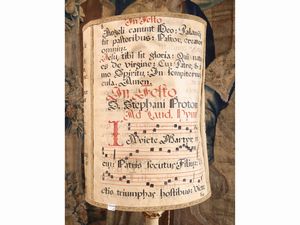 In Festo
Angeli canunt Deo: Palamq
fit pastoribus: Pastor, creator
omnium.
Jesu, tibi sit gloria: Qui natus
es de virgine: Cum Patre, &
mo Spiritu: In sempiterna
cula. Amen.
In Festo
S. Stephani Protom
Ad Laud. Hymn
Invicte Martyr
em Patris secutus Filium
ctis triumphas hostibus: Vic